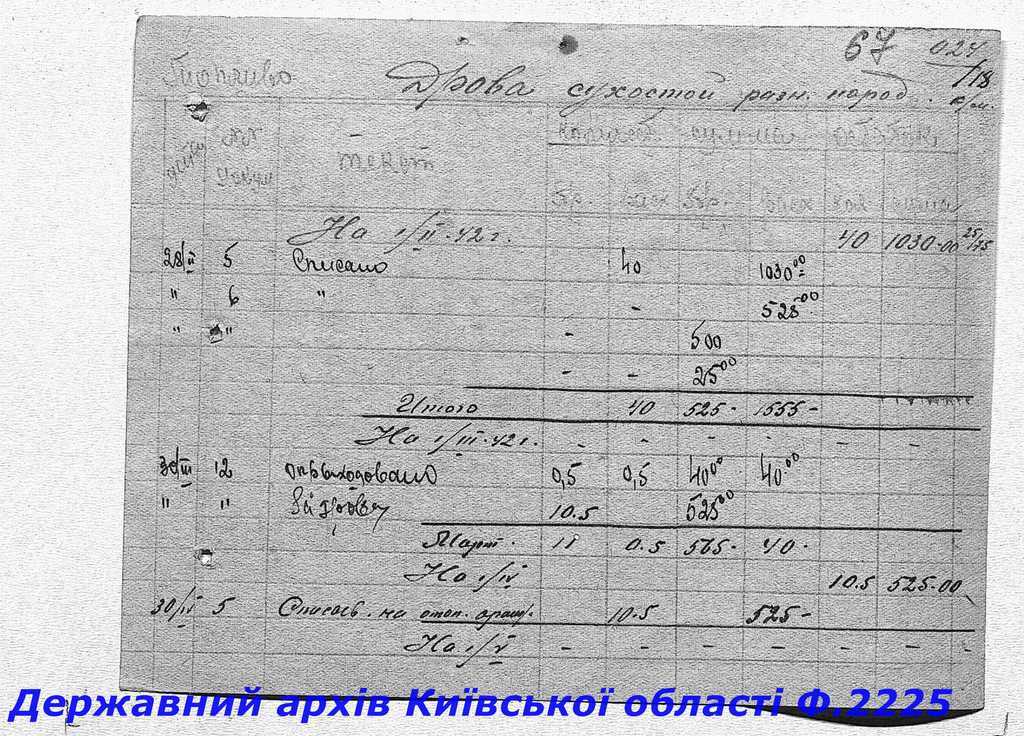 67 027/18
Топливо Дрова сухостой разн. пород. к/м.
дата №№ текст колич. сумма остаток
пр. расх пр. расх кол. сумма
На 1/II·42 г. 40 1030-00 25/75
28/II 5 Списано 40 1030⁰⁰
" 6 " - 525⁰⁰
" " - 500
- - 25⁰⁰
Итого 40 525- 1555-
На 1/III·42 г. - - - - - -
30/III 12 оприходовано 0,5 0,5 40⁰⁰ 40⁰⁰
" " 10.5 525⁰⁰
Март. 11 0.5 565- 40-
На 1/IV 10.5 525-00
30/IV 5 Списав. на отоп. 10.5 525-
На 1/V - - - - - -
Державний архів Київської області Ф.2225